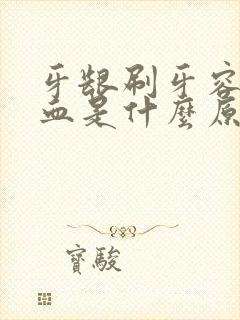 牙龈刷牙容
血是什麼原
寶駿